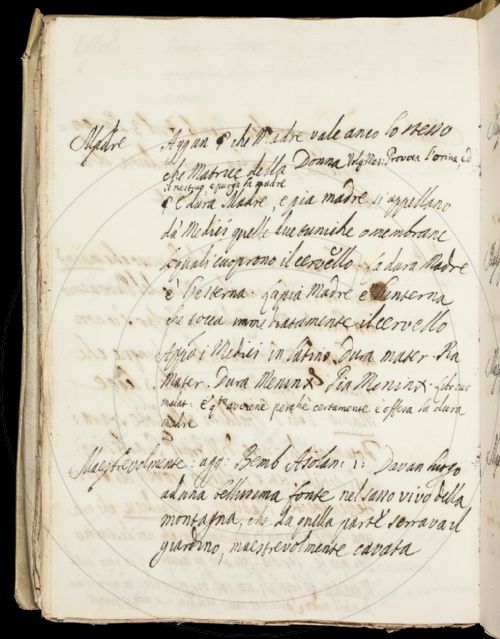 Madre Aggiun che Madre vale anco lo stesso
che Matrice della Donna Volg Mes: Provoca l'orina, ed
il mestruo, e purga la madre
e dura Madre, e pia madre si appellano
da Medici quelle due tuniche o membrane
le quali cuoprono il cervello. La dura Madre
è l'esterna. La pia Madre è l'interna
che tocca immediatamente il cervello
Appo i Medici in latino Dura mater. Pia
Mater. Dura Meninx Pia Meninx. Libr cur
malat. e qto avviene perchè certamente è offesa la dura
madre
Maestrevolmente: agg: Bemb Asolan: 1: Davan luogo
ad una bellissima fonte nel sasso vivo della
montagna, che da quella parte serrava il
giardino, maestrevolmente cavata